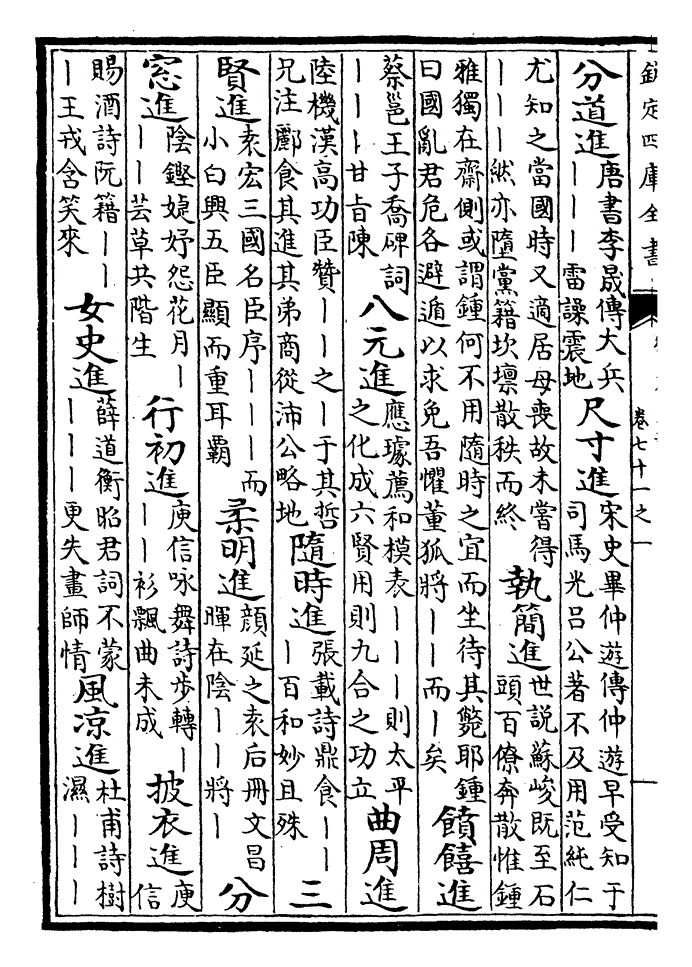 欽定四庫全書
卷七十一之一
分道進 唐書李晟傳大兵｜｜｜雷譟震地 尺寸進 宋史畢仲游傳仲游早受知于司馬光吕公著不及用范純仁
尤知之當國時又適居母喪故未嘗得｜｜｜然亦墮黨籍坎壈散秩而終 執簡進 世説蘇峻既至石頭百僚奔散惟鍾
雅獨在齋側或謂鍾何不用隨時之宜而坐待其斃耶鍾曰國亂君危各避遁以求免吾懼董狐將｜｜而｜矣 饙饎進
蔡邕王子喬碑詞｜｜｜甘旨陳 八元進 應璩薦和模表｜｜｜則太平之化成六賢用則九合之功立 曲周進
陸機漢高功臣贊｜｜之｜于其哲兄注酈食其進其弟商從沛公略地 隨時進 張載詩鼎食｜｜｜百和妙且殊 三
賢進 袁宏三國名臣序｜｜｜｜而小白興五臣顯而重耳霸 柔明進 顔延之袁后册文昌暉在陰｜｜將｜ 分
窓進 陰鏗婕妤怨花月｜｜｜芸草共階生 行初進 庾信咏舞詩步轉｜｜｜衫飄曲未成 披衣進 庾信
賜酒詩阮籍｜｜｜王戎含笑來 女史進 薛道衡昭君詞不蒙｜｜｜更失畫師情 風凉進 杜甫詩樹濕｜｜｜